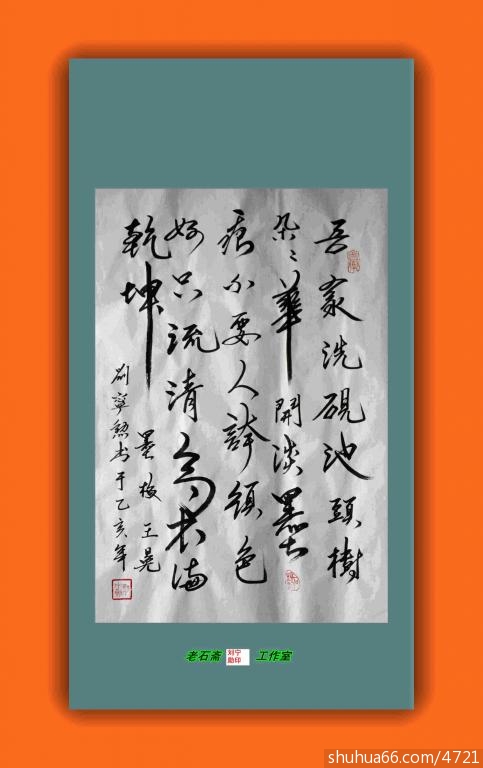 吾家洗硯池頭樹
朵〻華開淡墨
痕不要人誇顔色
好只流清氣滿
乾坤
墨梅 王冕
劉寧勲书于乙亥年
老石斋 刘宁勛印 工作室
shuhua66.com/4721